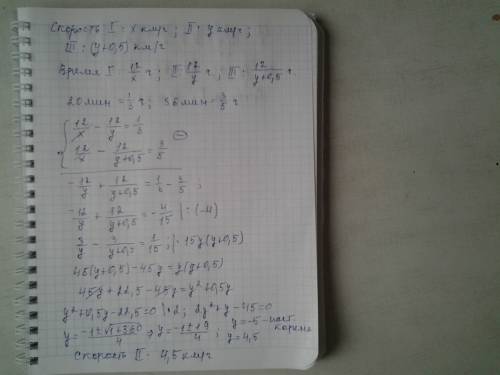 Скорость I - x км/ч; II - y км/ч;
III - (y+0,5) км/ч
Время I - 12/x ч; II 12/y ч; III - 12/(y+0,5) ч.
20 мин = 1/3 ч; 36 мин = 3/5 ч
{ 12/x - 12/y = 1/3
12/x - 12/(y+0,5) = 3/5 (-)
-12/y + 12/(y+0,5) = 1/3 - 3/5;
-12/y + 12/(y+0,5) = -4/15 | : (-4)
3/y - 3/(y+0,5) = 1/15; | · 15y(y+0,5)
45(y+0,5) - 45y = y(y+0,5)
45y + 22,5 - 45y = y² + 0,5y
y² + 0,5y - 22,5 = 0 | · 2; 2y² + y - 45 = 0
y = (-1±√(1+360))/4; y = (-1±19)/4; y = -5 - пост. корень
y = 4,5
Скорость II - 4,5 км/ч